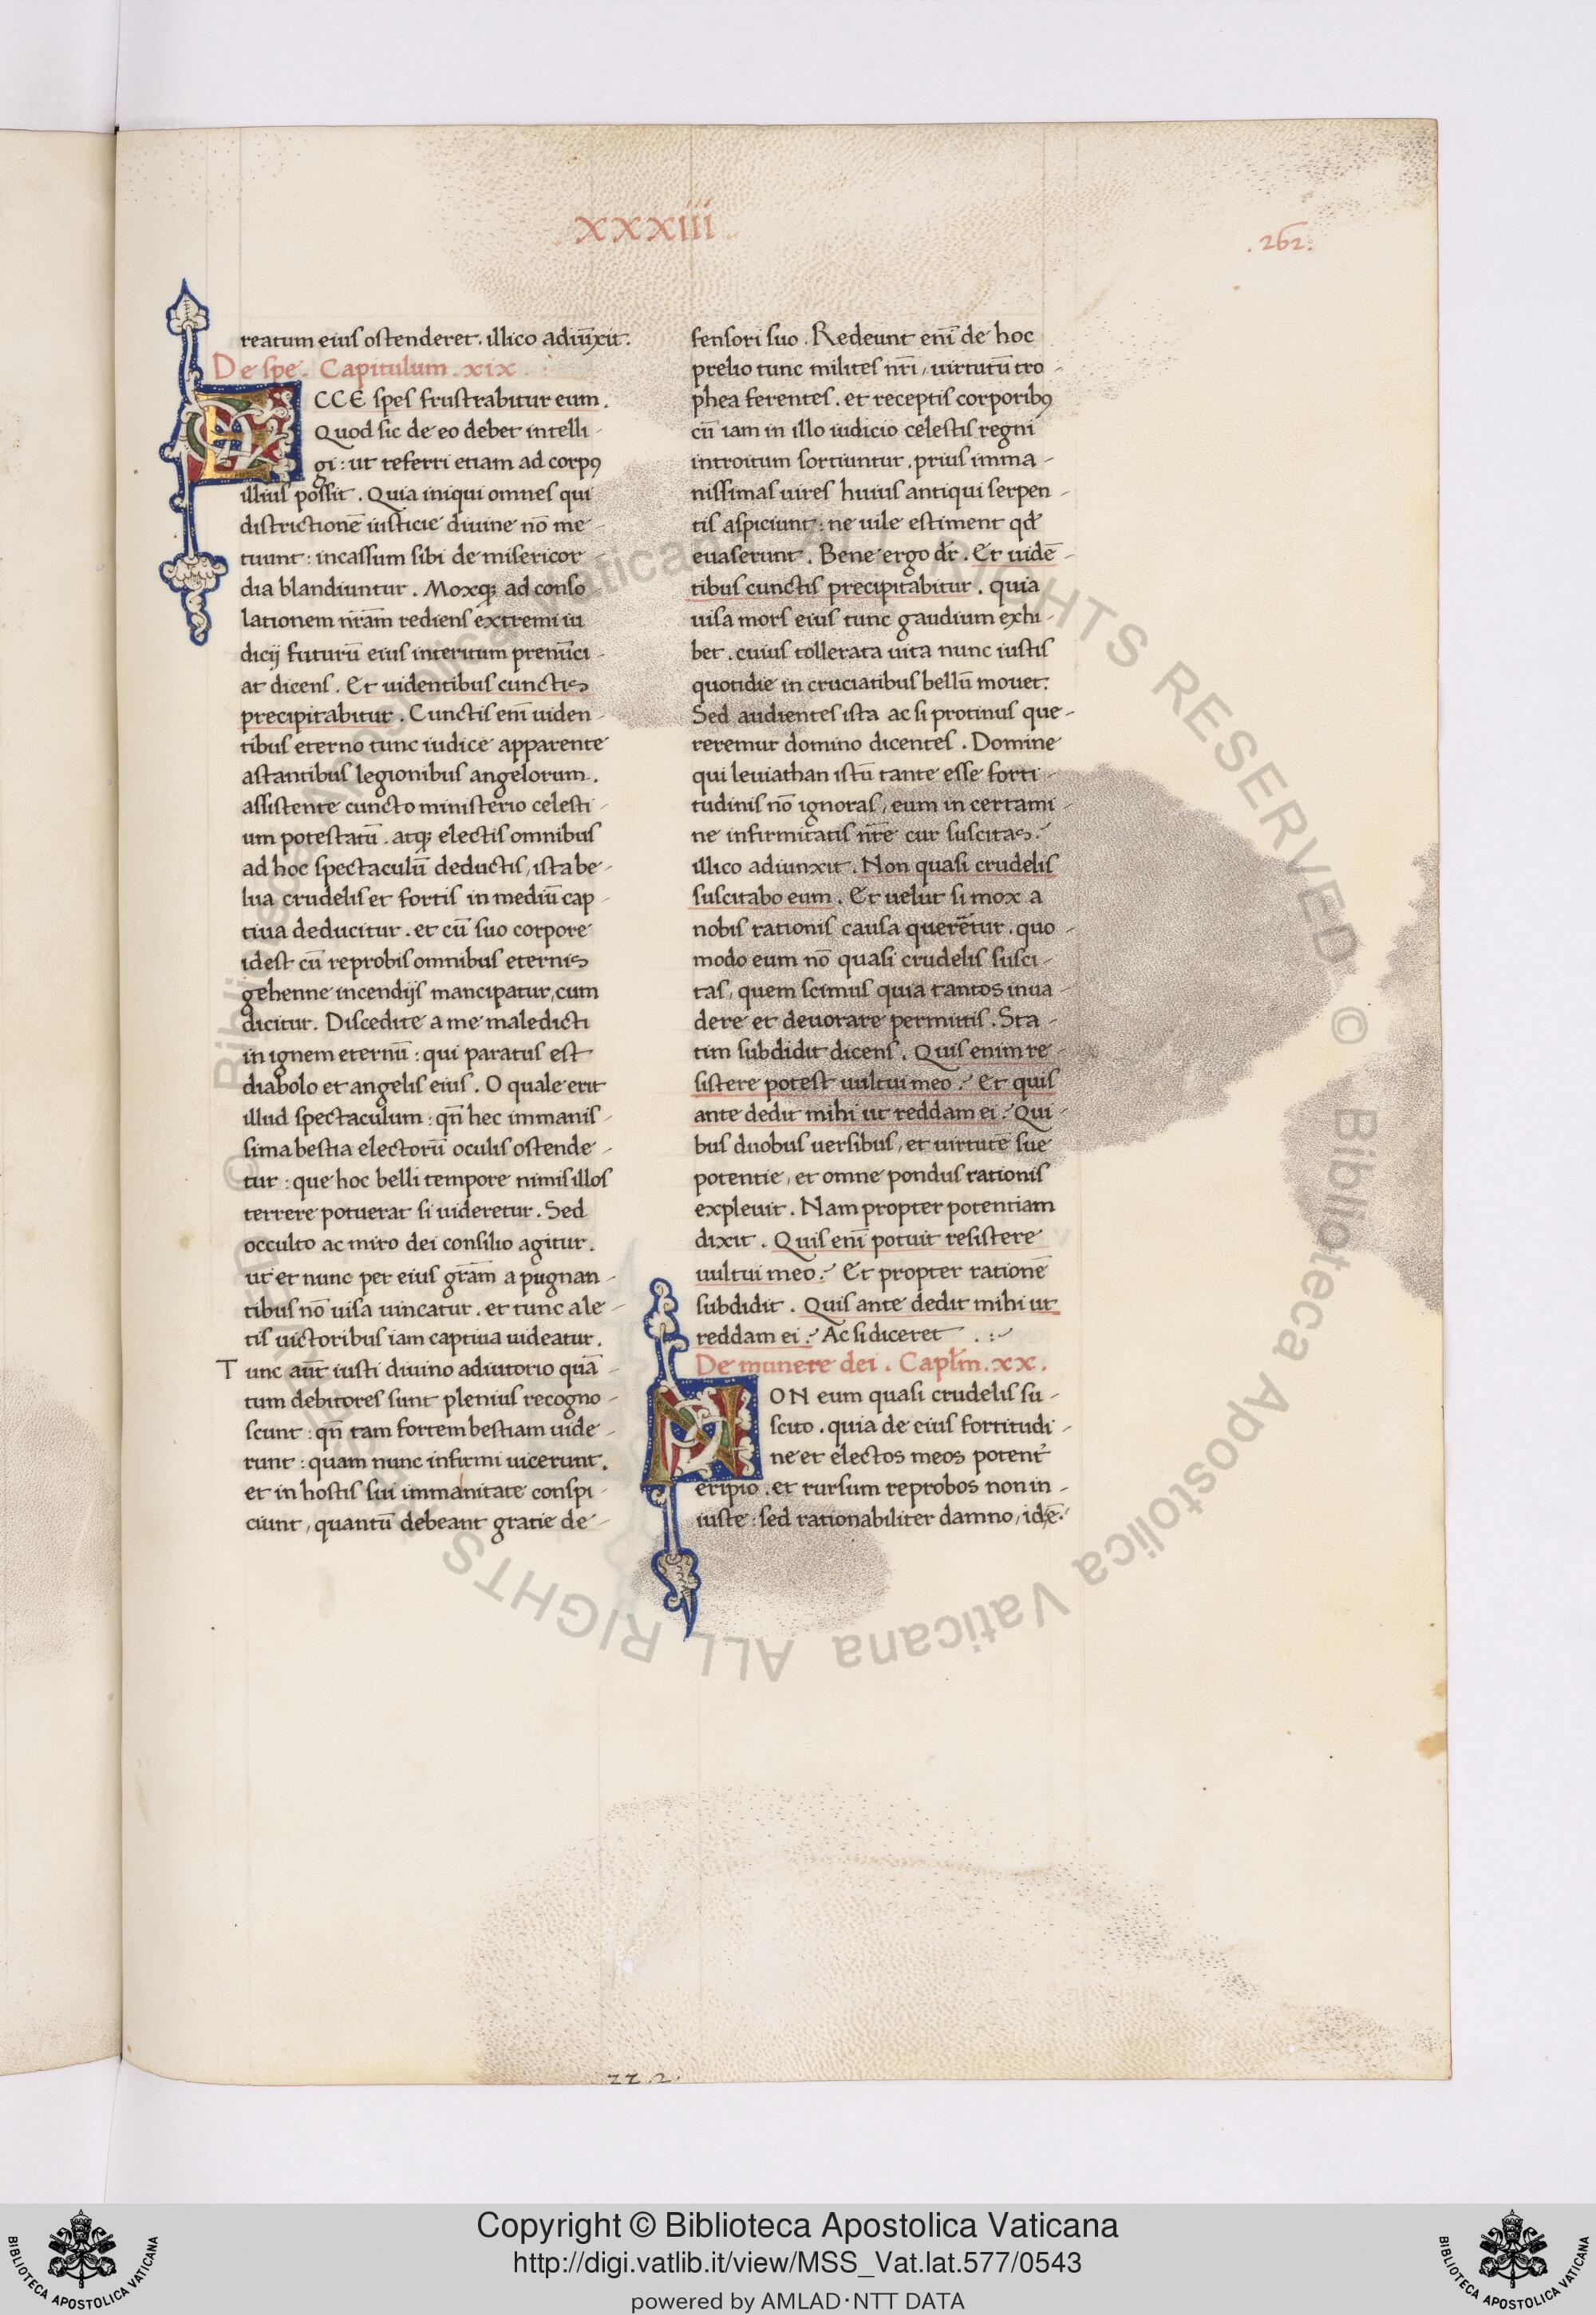 xxxiii
.262.
reatum eius ostenderet. illico adiūxit.
De spe. Capitulum .xix.
ECCE spes frustrabitur eum.
Quod sic de eo debet intelli-
gi: ut referri etiam ad corpꝯ
illius possit. Quia iniqui omnes qui
districtionē iusticie diuine nō me-
tuunt: incassum sibi de misericor-
dia blandiuntur. Moxqꝫ ad conso-
lationem nr̄am rediens extremi iu
dicij futurū eius interitum prenūci-
at dicens. Et uidentibus cunctis
precipitabitur. Cunctis enī uiden-
tibus eterno tunc iudice apparente
astantibus legionibus angelorum.
assistente cuncto ministerio celesti-
um potestatū. atqꝫ electis omnibus
ad hoc spectaculū deductis, ista be-
lua crudelis et fortis in mediū cap-
tiua deducitur. et cū suo corpore
idest cū reprobis omnibus eternis
gehenne incendijs mancipatur, cum
dicitur. Discedite a me maledicti
in ignem eternū: qui paratus est
diabolo et angelis eius. O quale erit
illud spectaculum: qn̄ hec immanis-
sima bestia electorū oculis ostende-
tur: que hoc belli tempore nimis illos
terrere potuerat si uideretur. Sed
occulto ac miro dei consilio agitur.
ut et nunc per eius gr̄am a pugnan-
tibus nō uisa uincatur. et tunc a le-
tis uictoribus iam captiua uideatur.
Tunc aūt iusti diuino adiutorio quā-
tum debitores sunt plenius recogno-
scunt: qn̄ tam fortem bestiam uide-
runt: quam nunc infirmi uicerunt.
et in hostis sui immanitate conspi-
ciunt, quantū debeant gratie de-
fensori suo. Redeunt enī de hoc
prelio tunc milites nr̄i, uirtutū tro-
phea ferentes. et receptis corporibꝯ
cū iam in illo iudicio celestis regni
introitum sortiuntur. prius imma-
nissimas uires huius antiqui serpen-
tis aspiciunt: ne uile estiment qd̄
euaserunt. Bene ergo dr̄. Et uidē-
tibus cunctis precipitabitur. quia
uisa mors eius tunc gaudium exhi-
bet. cuius tollerata uita nunc iustis
quotidie in cruciatibus bellū mouet.
Sed audientes ista ac si protinus que-
reremur domino dicentes. Domine
qui leuiathan istū tante esse forti-
tudinis nō ignoras, eum in certami-
ne infirmitatis nr̄e cur suscitas?
illico adiunxit. Non quasi crudelis
suscitabo eum. Et uelut si mox a
nobis rationis causa querēтur. quo-
modo eum nō quasi crudelis susci-
tas, quem scimus quia tantos inua-
dere et deuorare permittis. Sta-
tim subdidit dicens. Quis enim re-
sistere potest uultui meo? Et quis
ante dedit mihi ut reddam ei? Qui-
bus duobus uersibus, et uirtutē sue
potentie, et omne pondus rationis
expleuit. Nam propter potentiam
dixit. Quis enī potuit resistere
uultui meo? Et propter rationē
subdidit. Quis ante dedit mihi ut
reddam ei? Ac si diceret
De munere dei. Capłm .xx.
NON eum quasi crudelis su-
scito. quia de eius fortitudi-
ne et electos meos potent̉
eripio. et rursum reprobos non in-
iuste: sed rationabiliter damno, idē.
22.2.
© Biblioteca Apostolica Vaticana ALL RIGHTS RESERVED © Biblioteca Apostolica Vaticana ALL RIGHTS RESERVED
Copyright © Biblioteca Apostolica Vaticana
http://digi.vatlib.it/view/MSS_Vat.lat.577/0543
powered by AMLAD·NTT DATA
BIBLIOTECA APOSTOLICA VATICANA
BIBLIOTECA APOSTOLICA VATICANA